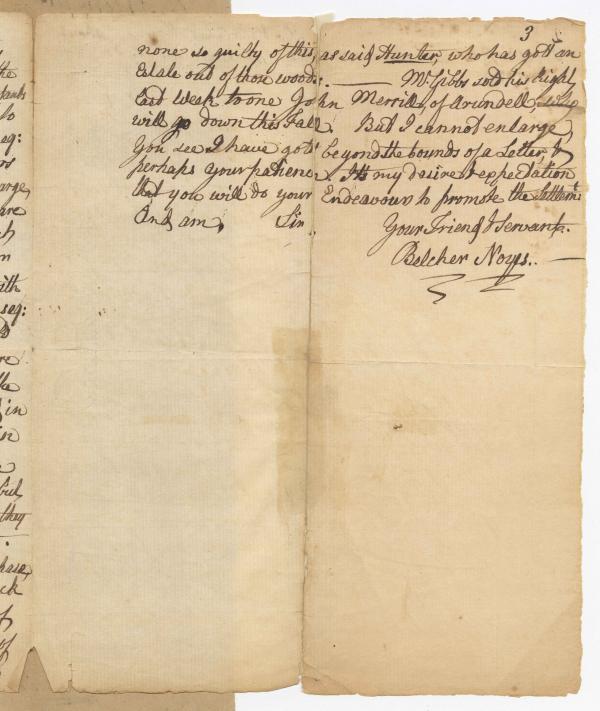 3
none so guilty of this, as said Hunter, who has gott an
Estate out of thou woods. — Mr. Gibbs sold his Right
last Week to one John Merrill of Arundell, who
will go down this Fall. But I cannot enlarge,
You see I have gott beyond the bounds of a Letter, &
perhaps your patience. Its my desire & expectation
that you will do your Endeavour to promote the Settlemt
And am, Sir.
Your Friend & Servant.
Belcher Noyes. —
the
to
seq:
arge,
are
ch
ith
seq:
re
the
in
but
they
hase,
ck
of
of